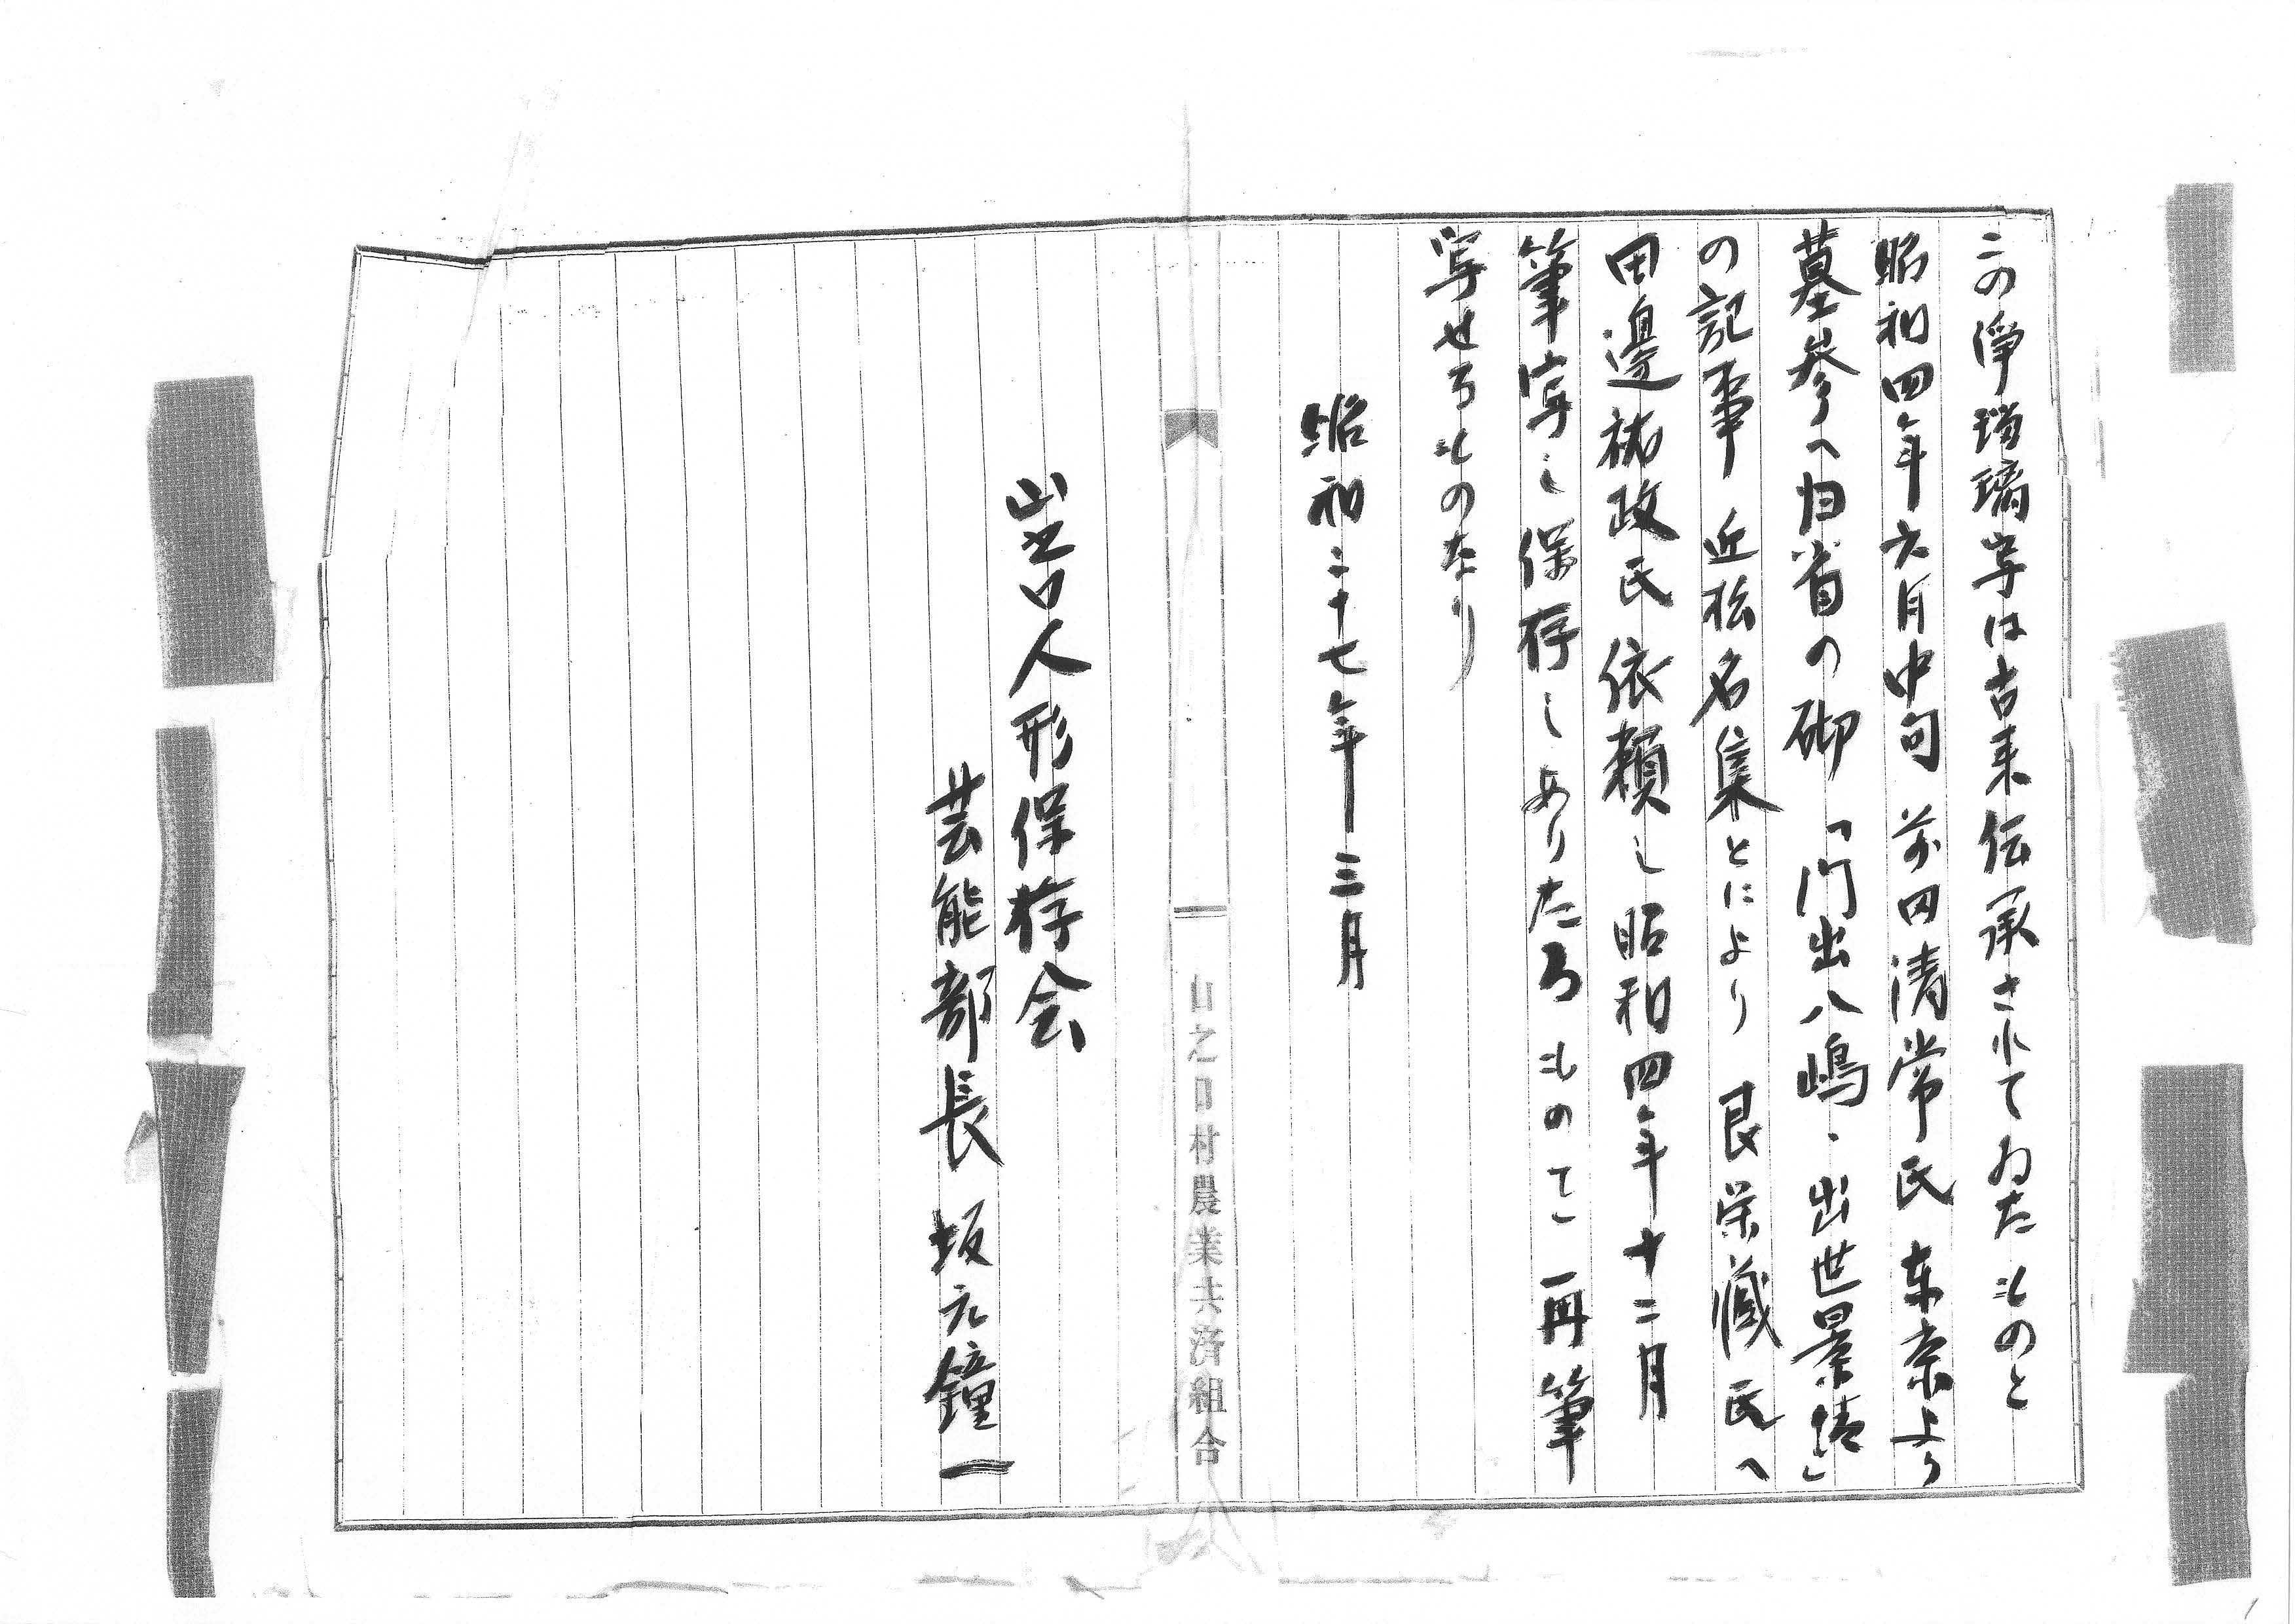 この浄瑠璃字は古来伝承されてゐたものと
昭和四年六月中旬 前田清常氏 东京より
墓参へ归省の砌「門出八嶋・出世景清」
の記事 近松名集とにより 艮栄蔵氏へ
田邊祐政氏依頼し昭和四年十二月
筆写し保存しありたるものてこ 再筆
写せるものなり
昭和二十七年三月
山之口村農業共済組合
山之口人形保存会
芸能部長 坂元鐘一